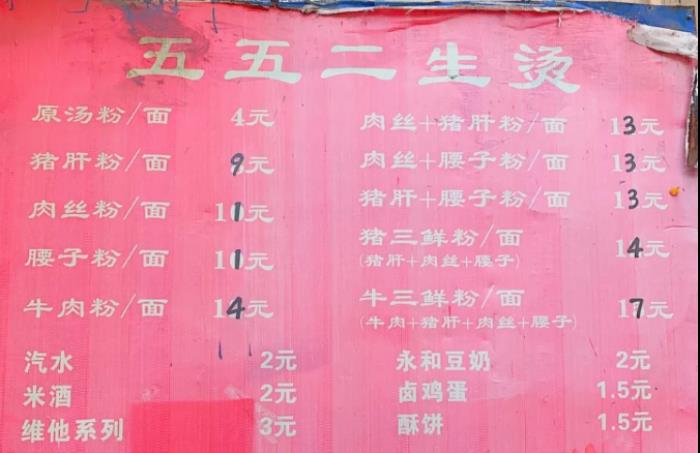 五五二生烫
原汤粉/面 4元
猪肝粉/面 9元
肉丝粉/面 11元
腰子粉/面 11元
牛肉粉/面 14元
肉丝+猪肝粉/面 13元
肉丝+腰子粉/面 13元
猪肝+腰子粉/面 13元
猪三鲜粉/面 14元
(猪肝+肉丝+腰子)
牛三鲜粉/面 17元
(牛肉+猪肝+肉丝+腰子)
汽水 2元
米酒 2元
维他系列 3元
永和豆奶 2元
卤鸡蛋 1.5元
酥饼 1.5元